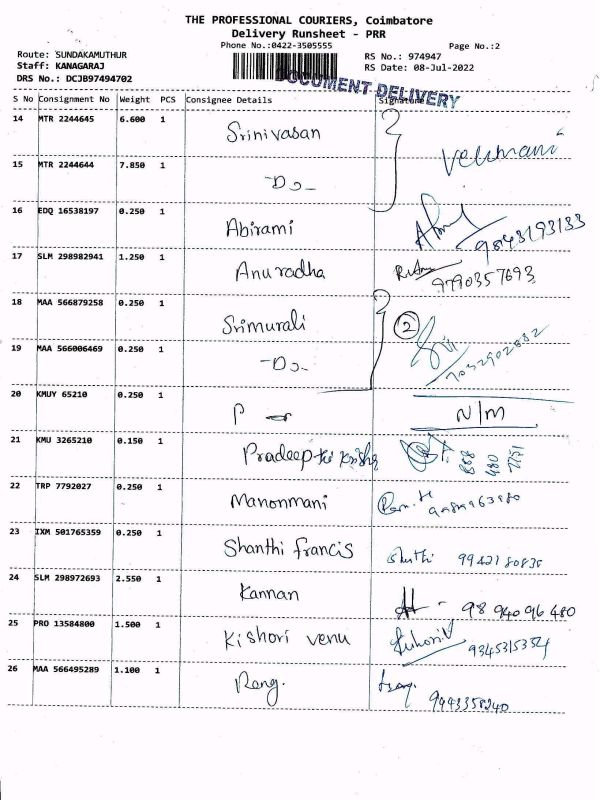 THE PROFESSIONAL COURIERS, Coimbatore
Delivery Runsheet - PRR
Phone No.:0422-3505555 Page No.:2
Route: SUNDAKAMUTHUR RS No.: 974947
Staff: KANAGARAJ RS Date: 08-Jul-2022
DRS No.: DCJB97494702
DOCUMENT DELIVERY
S No Consignment No Weight PCS Consignee Details Signature
14 MTR 2244645 6.600 1 Srinivasan
Velumani
15 MTR 2244644 7.850 1 -Do-
16 EDQ 16538197 0.250 1 Abirami 9843193133
17 SLM 298982941 1.250 1 Anuradha 9790357693
18 MAA 566879258 0.250 1 Srimurali 2
19 MAA 566006469 0.250 1 -Do-
20 KMUY 65210 0.250 1 P N/M
21 KMU 3265210 0.150 1 Pradeep
22 TRP 7792027 0.250 1 Manonmani
23 IXM 501765359 0.250 1 Shanthi francis
24 SLM 298972693 2.550 1 Kannan 98 940 96 480
25 PRO 13584800 1.500 1 Kishori venu 9345315354
26 MAA 566495289 1.100 1 9943358240